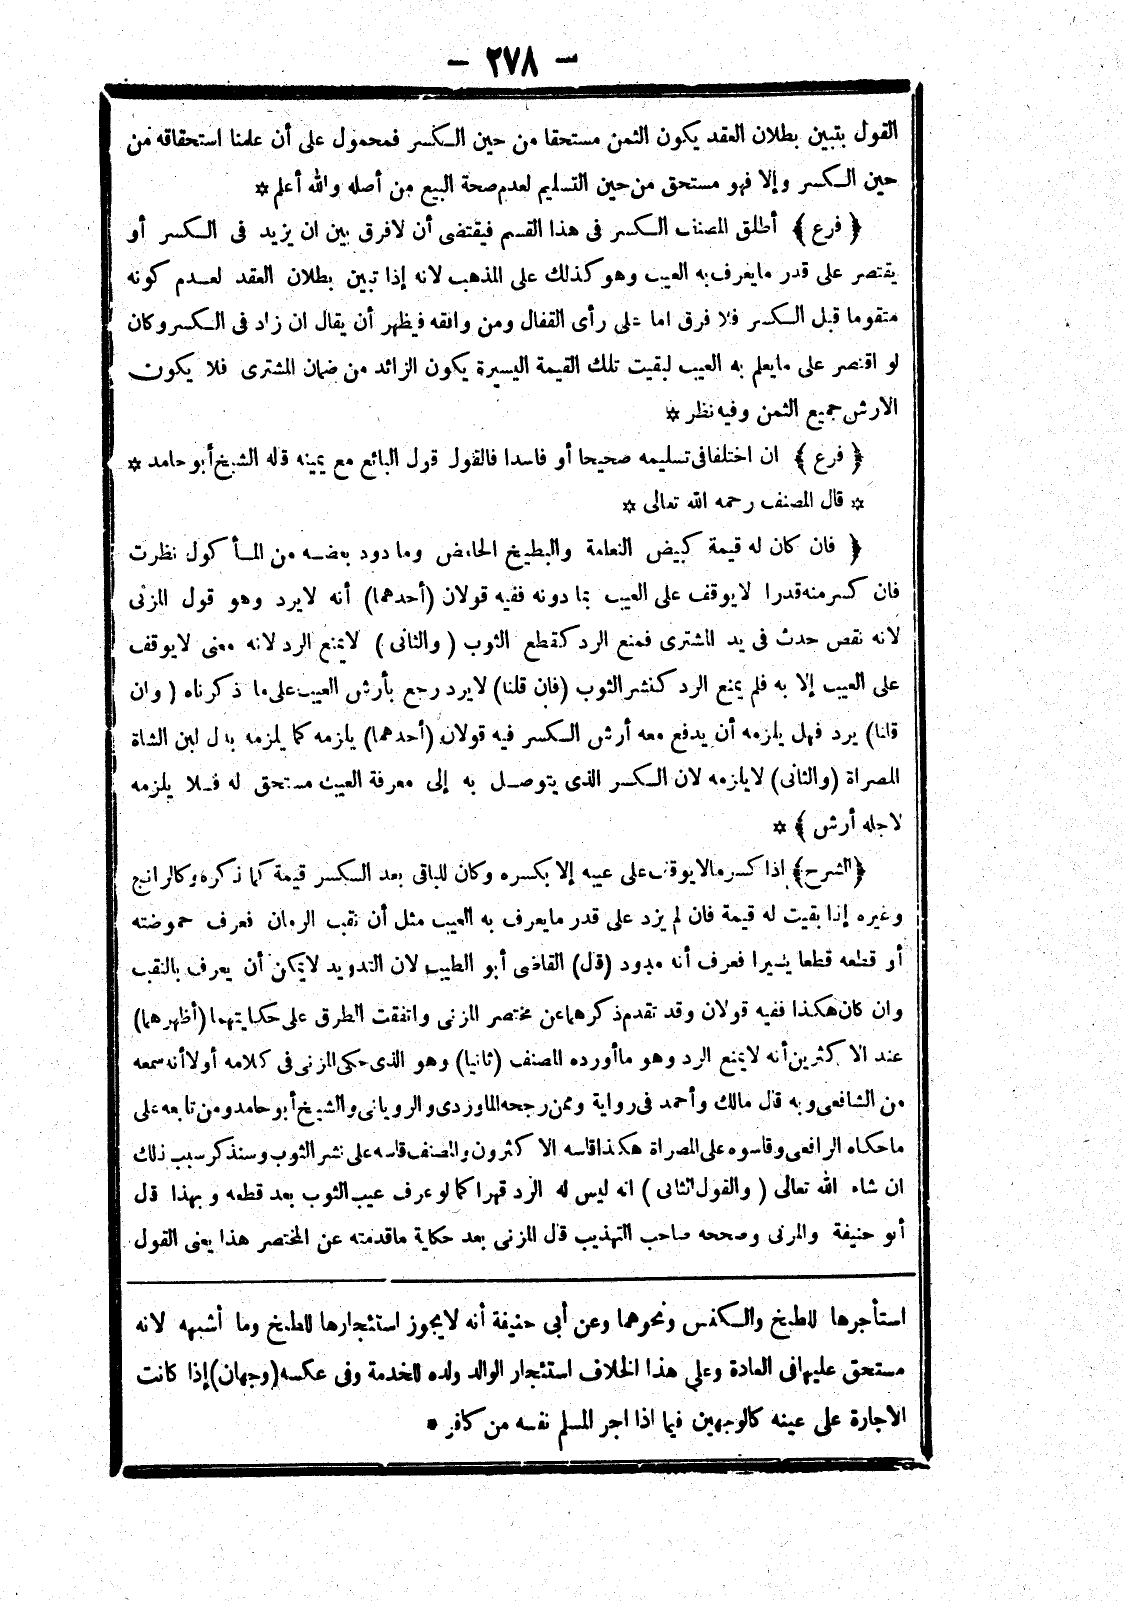 - ٢٧٨ -
القول بتبين بطلان العقد يكون الثمن مستحقا من حين الكسر فمحمول على أن علمنا استحقاقه من
حين الكسر وإلا فهو مستحق من حين التسليم لعدم صحة البيع من أصله والله أعلم *
﴿ فرع ﴾ أطلق المصنف الكسر فى هذا القسم فيقتضى أن لافرق بين ان يزيد فى الكسر أو
يقتصر على قدر مايعرف به العيب وهو كذلك على المذهب لانه إذا تبين بطلان العقد لعدم كونه
متقوما قبل الكسر فلا فرق اما على رأى القفال ومن وافقه فيظهر أن يقال ان زاد فى الكسر وكان
لو اقتصر على مايعلم به العيب لبقيت تلك القيمة اليسيرة يكون الزائد من ضمان المشترى فلا يكون
الارش جميع الثمن وفيه نظر *
﴿ فرع ﴾ ان اختلفا فى تسليمه صحيحا أو فاسدا فالقول قول البائع مع يمينه قاله الشيخ أبو حامد *
* قال المصنف رحمه الله تعالى *
﴿ فان كان له قيمة كبيض النعامة والبطيخ الحامض وما دود بعضه من المأكول نظرت
فان كسر منه قدرا لايوقف على العيب بما دونه ففيه قولان (أحدهما) أنه لايرد وهو قول المزنى
لانه نقص حدث فى يد المشترى فمنع الرد كقطع الثوب ( والثانى ) لايمنع الرد لانه معنى لايوقف
على العيب إلا به فلم يمنع الرد كنشر الثوب (فان قلنا) لايرد رجع بأرش العيب على ما ذكرناه ( وان
قلنا) يرد فهل يلزمه أن يدفع معه أرش الكسر فيه قولان (أحدهما) يلزمه كما يلزمه بدل لبن الشاة
المصراة (والثانى) لايلزمه لان الكسر الذى يتوصل به إلى معرفة العيب مستحق له فلا يلزمه
لاجله أرش ﴾ *
﴿الشرح﴾ إذا كسر مالا يوقف على عيبه إلا بكسره وكان للباقى بعد الكسر قيمة كما ذكره وكالرانج
وغيره إذا بقيت له قيمة فان لم يزد على قدر مايعرف به العيب مثل أن نقب الرمان فعرف حموضته
أو قطعه قطعا يسيرا فعرف أنه مدود (قال) القاضى أبو الطيب لان التدويد لايمكن أن يعرف بالنقب
وان كان هكذا ففيه قولان وقد تقدم ذكرهما عن مختصر المزنى واتفقت الطرق على حكايتهما (أظهرهما)
عند الاكثرين أنه لايمنع الرد وهو ماأورده المصنف (ثانيا) وهو الذى حكى المزنى فى كلامه أولا أنه سمعه
من الشافعى وبه قال مالك وأحمد فى رواية وممن رجحه الماوردى والرويانى والشيخ أبو حامد ومن تابعه على
ماحكاه الرافعى وقاسوه على المصراة هكذا قاسه الاكثرون والمصنف قاسه على نشر الثوب وسنذكر سبب ذلك
ان شاء الله تعالى ( والقول الثانى ) انه ليس له الرد قهرا كما لو عرف عيب الثوب بعد قطعه وبهذا قال
أبو حنيفة والمزنى وصححه صاحب التهذيب قال المزنى بعد حكاية ماقدمته عن المختصر هذا يعنى القول
استأجرها للطبخ والكنس ونحوهما وعن أبى حنيفة أنه لايجوز استئجارها للطبخ وما أشبهه لانه
مستحق عليها فى العادة وعلي هذا الخلاف استئجار الوالد ولده للخدمة وفى عكسه (وجهان) إذا كانت
الاجارة على عينه كالوجهين فيما اذا اجر المسلم نفسه من كافر *